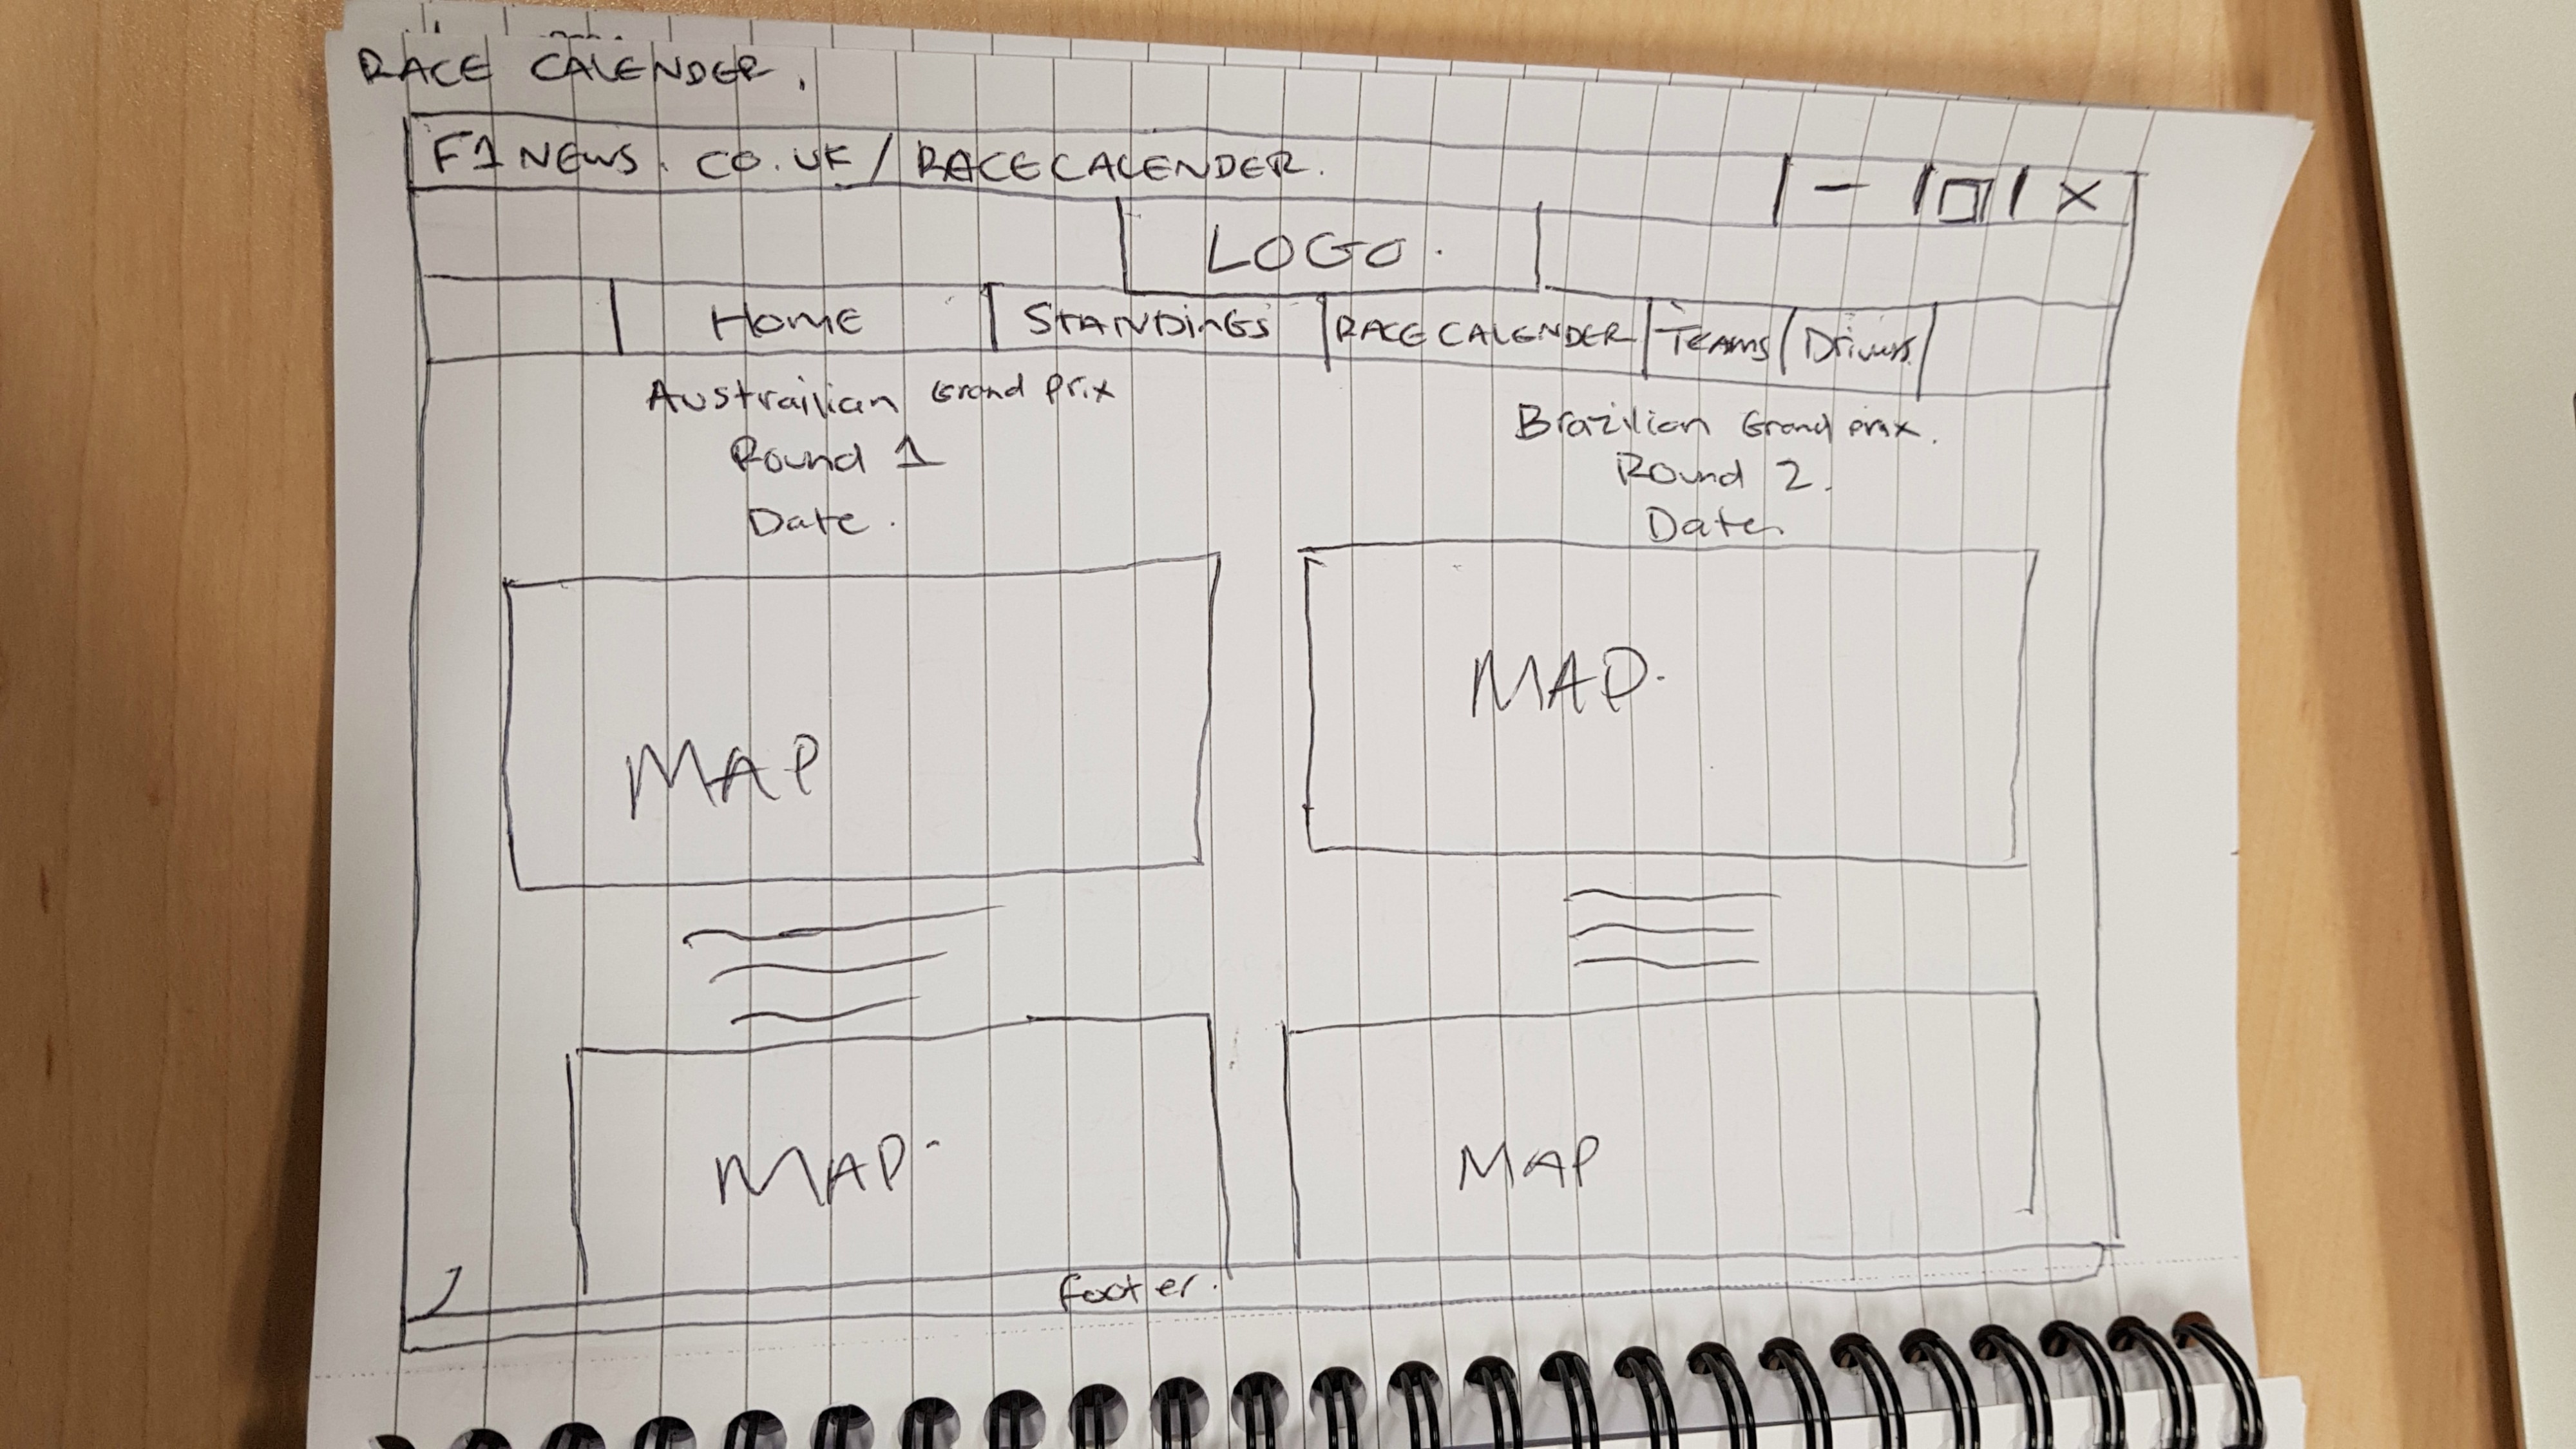 RACE CALENDER.
F1NEWS.CO.UK/RACECALENDER.
LOGO.
HOME STANDINGS RACE CALENDER TEAMS Drivers
Austrailian Grand Prix
Round 1
Date.
Brazilian Grand Prix.
Round 2.
Date.
MAP
MAP.
MAP.
MAP
footer.